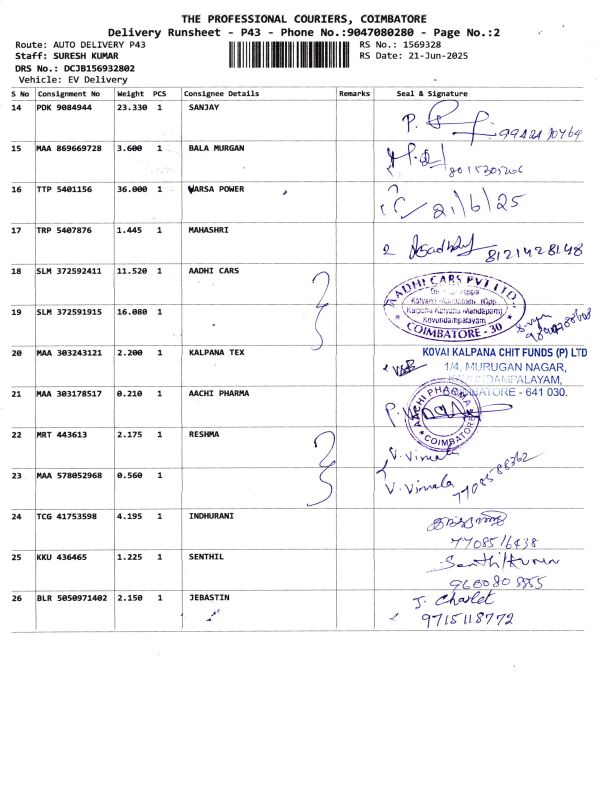 THE PROFESSIONAL COURIERS, COIMBATORE
Delivery Runsheet - P43 - Phone No.:9047080280 - Page No.:2
Route: AUTO DELIVERY P43 RS No.: 1569328
Staff: SURESH KUMAR RS Date: 21-Jun-2025
DRS No.: DCJB156932802
Vehicle: EV Delivery
S No Consignment No Weight PCS Consignee Details Remarks Seal & Signature
14 PDK 9084944 23.330 1 SANJAY
15 MAA 869669728 3.600 1 BALA MURGAN
16 TTP 5401156 36.000 1 VARSA POWER 21/6/25
17 TRP 5407876 1.445 1 MAHASHRI 8121428148
18 SLM 372592411 11.520 1 AADHI CARS
AADHI CARS PVT LTD
Kovundampalayam
COIMBATORE - 30
19 SLM 372591915 16.080 1
20 MAA 303243121 2.200 1 KALPANA TEX
KOVAI KALPANA CHIT FUNDS (P) LTD
1/4, MURUGAN NAGAR,
21 MAA 303178517 0.210 1 AACHI PHARMA
AACHI PHARMA
COIMBATORE
641 030.
22 MRT 443613 2.175 1 RESHMA V. Vimala
23 MAA 578052968 0.560 1 V. Vimala 7708588362
24 TCG 41753598 4.195 1 INDHURANI
7708516438
25 KKU 436465 1.225 1 SENTHIL
26 BLR 5050971402 2.150 1 JEBASTIN J. Charlet
9715118772